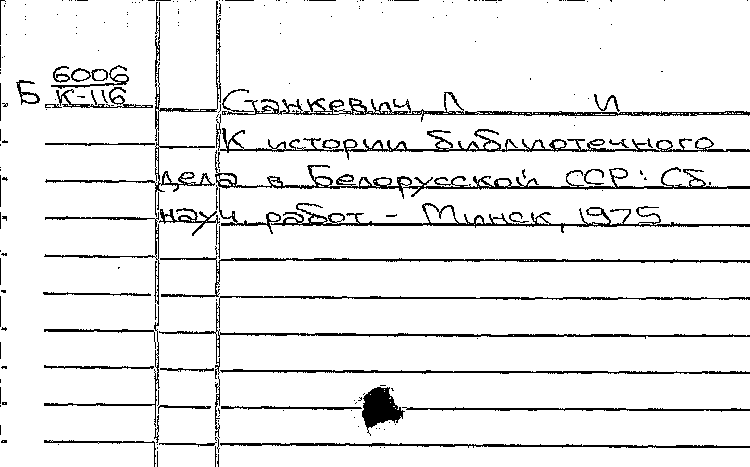 6006
Б К-116
Станкевич, Л И
К истории библиотечного
дела в Белорусской ССР: Сб.
науч. работ. - Минск, 1975.